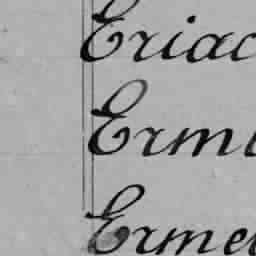 Eriac
Erm
Erme